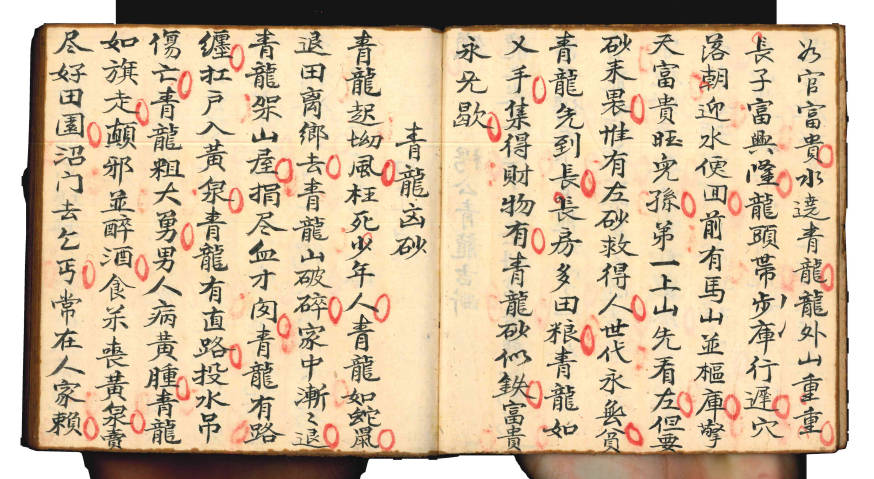 为官富貴水遶青龍龍外山重重
長子富興隆龍頭带步庫行遲穴
落朝迎水便回前有馬山並樞庫擎
天富貴旺児孫第一上山先看左但要
砂来畏惟有左砂救得人世代永無貧
青龍先到長長房多田粮青龍如
乂手集得財物有青龍砂似鉄富貴
永無歇
青龍凶砂
青龍起坳風枉死少年人青龍如蛇鼠
退田离鄉去青龍山破碎家中漸〻退
青龍架山屋損尽血才囡青龍有路
纏扛戸入黄泉青龍有直路投水吊
傷亡青龍粗大勇男人病黄腫青龍
如旗走顛邪並醉酒食茶喪黄泉賣
尽好田園沿门去乞丐常在人家賴